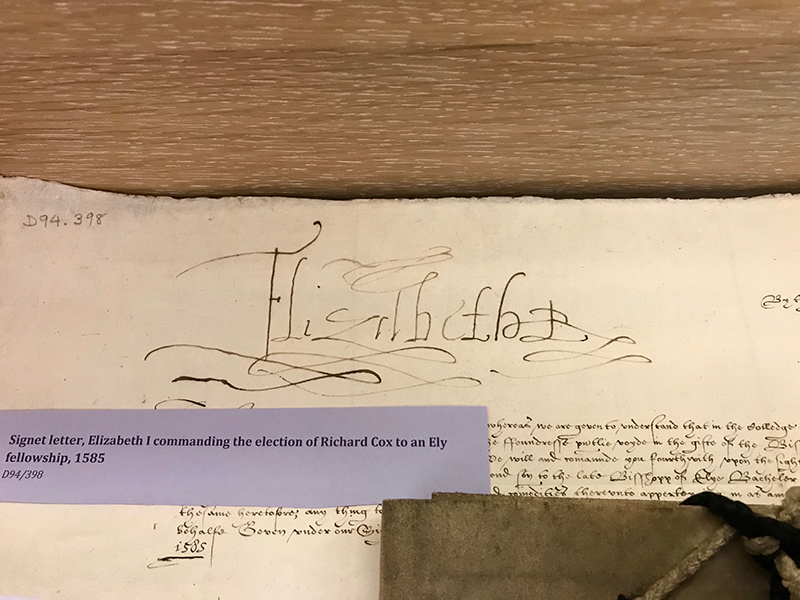 D94.398
Elizabeth R
By
Signet letter, Elizabeth I commanding the election of Richard Cox to an Ely
fellowship, 1585
D94/398
whereas we are geven to understand that in the Colledge
ffoundresse publie voyde in the gifte of the Bis
will and comaunde you fourthwith upon the sight
son to the late Bisshopp of Elye Bachelor
comodities thereunto apperte in as am
the same heretofore any thing to
behalfe Geven under our Si
1585